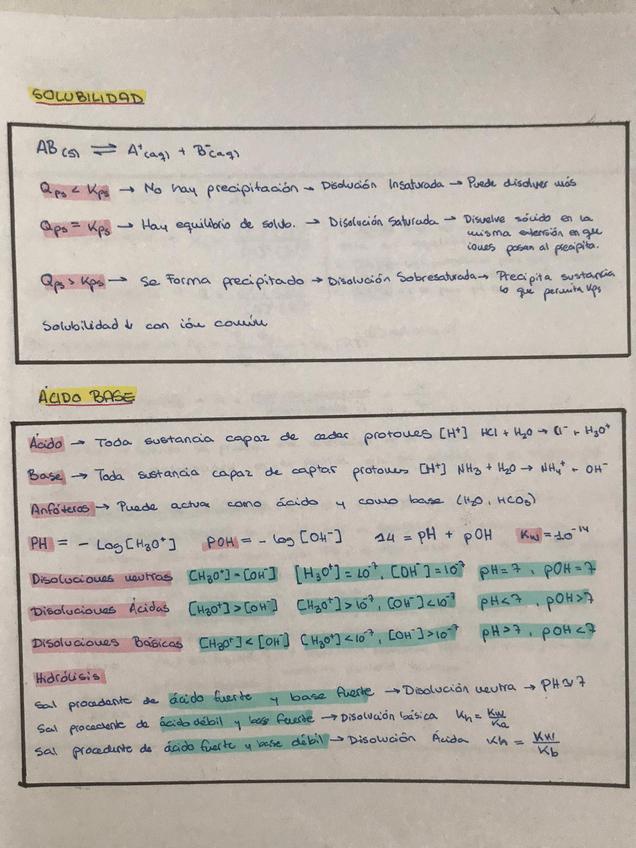 SOLUBILIDAD
AB(s) ⇌ A⁺(aq) + B⁻(aq)
Qps < Kps → No hay precipitación → Disolución Insaturada → Puede disolver más
Qps = Kps → Hay equilibrio de solub. → Disolución Saturada → Disuelve sócido en la
misma extensión en que
iones pasan al precipita.
Qps > Kps → Se Forma precipitado → Disolución Sobresaturada → Precipita sustancia
lo que permita Kps
Solubilidad ↓ con ión común
ÁCIDO BASE
Ácido → Toda sustancia capaz de ceder protones [H⁺] HCl + H₂O → Cl⁻ + H₃O⁺
Base → Toda sustancia capaz de captar protones [H⁺] NH₃ + H₂O → NH₄⁺ + OH⁻
Anfóteros → Puede actuar como ácido y como base (H₂O, HCO₃)
PH = - Log [H₃O⁺] POH = - log [OH⁻] 14 = pH + pOH Kw = 10⁻¹⁴
Disoluciones neutras [H₃O⁺] = [OH⁻] [H₃O⁺] = 10⁻⁷, [OH⁻] = 10⁻⁷ pH = 7, pOH = 7
Disoluciones Ácidas [H₃O⁺] > [OH⁻] [H₃O⁺] > 10⁻⁷, [OH⁻] < 10⁻⁷ pH < 7, pOH > 7
Disoluciones Básicas [H₃O⁺] < [OH⁻] [H₃O⁺] < 10⁻⁷, [OH⁻] > 10⁻⁷ pH > 7, pOH < 7
Hidrólisis
Sal procedente de ácido fuerte y base fuerte → Disolución neutra → PH ≃ 7
Sal procedente de ácido débil y base fuerte → Disolución básica Kh = Kw/Ka
Sal procedente de ácido fuerte y base débil → Disolución Ácida Kh = Kw/Kb